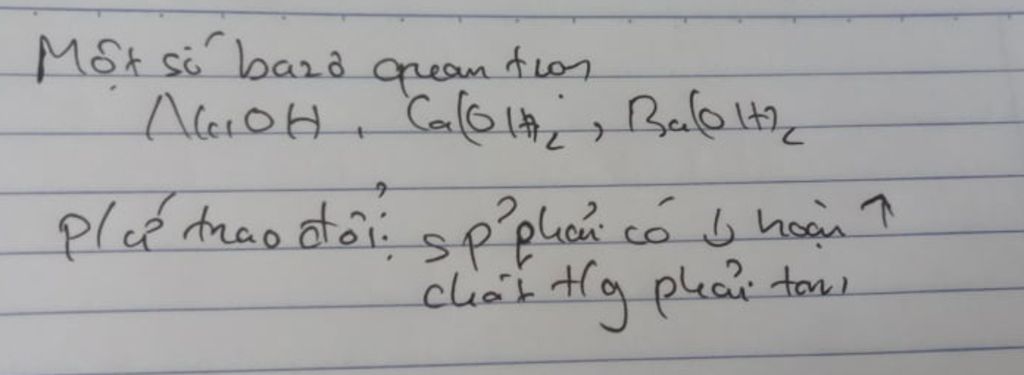 Một số bazơ quan trọn
NaOH, Ca(OH)₂, Ba(OH)₂
P/ứ trao đổi: sp' phải có ↓ hoặc ↑
chất t/g phải tan